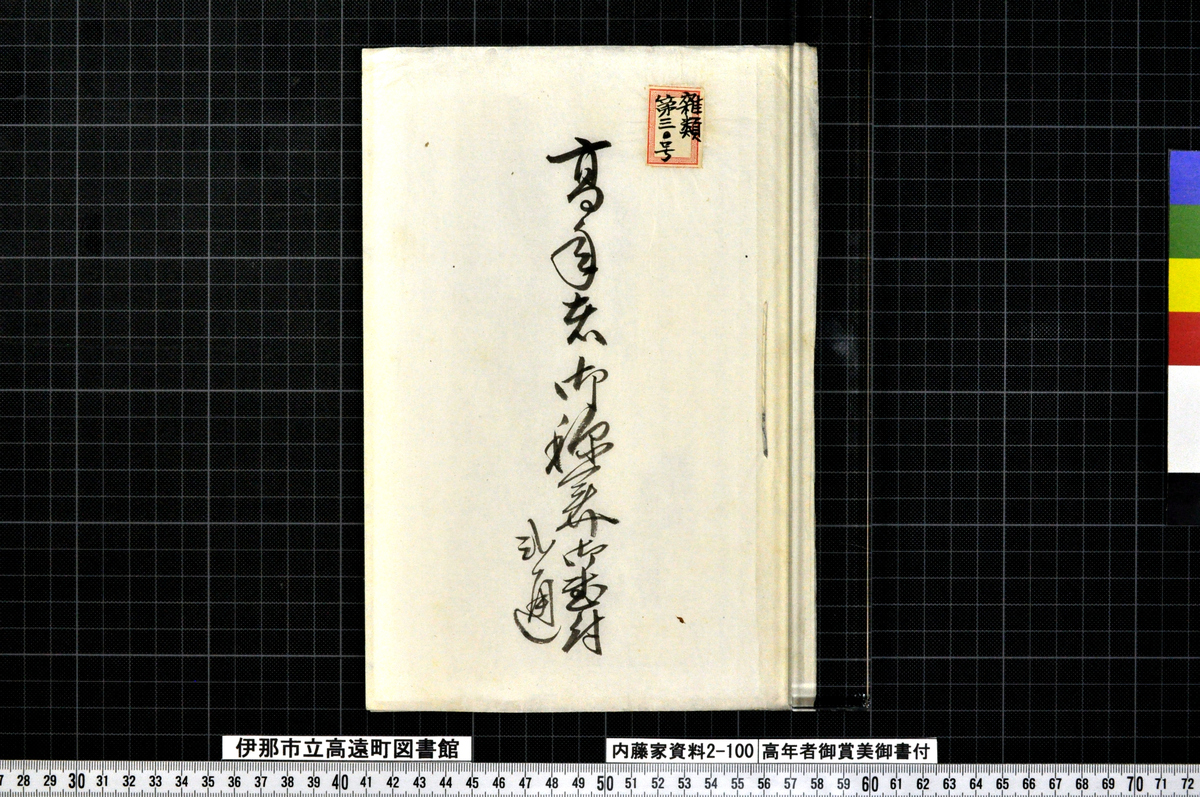 雜類
第三〇号
高年者御称美御書付
弐通
伊那市立高遠町図書館
内藤家資料2-100 高年者御賞美御書付
28 29 30 31 32 33 34 35 36 37 38 39 40 41 42 43 44 45 46 47 48 49 50 51 52 53 54 55 56 57 58 59 60 61 62 63 64 65 66 67 68 69 70 71 72